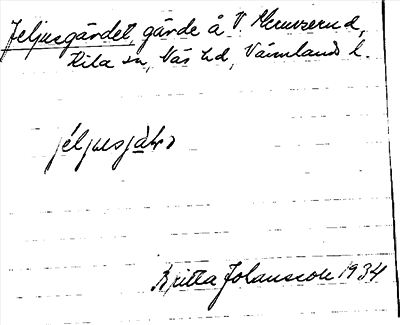 Jeljusgärdet, gärde å V.
Kila sn, Näs hd, Värmlands l.
jéljusjà
Britta Johansson 1934